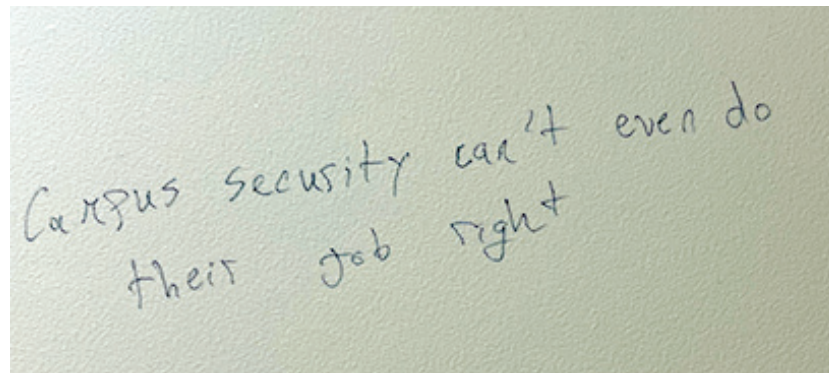 Campus security can't even do
their job right